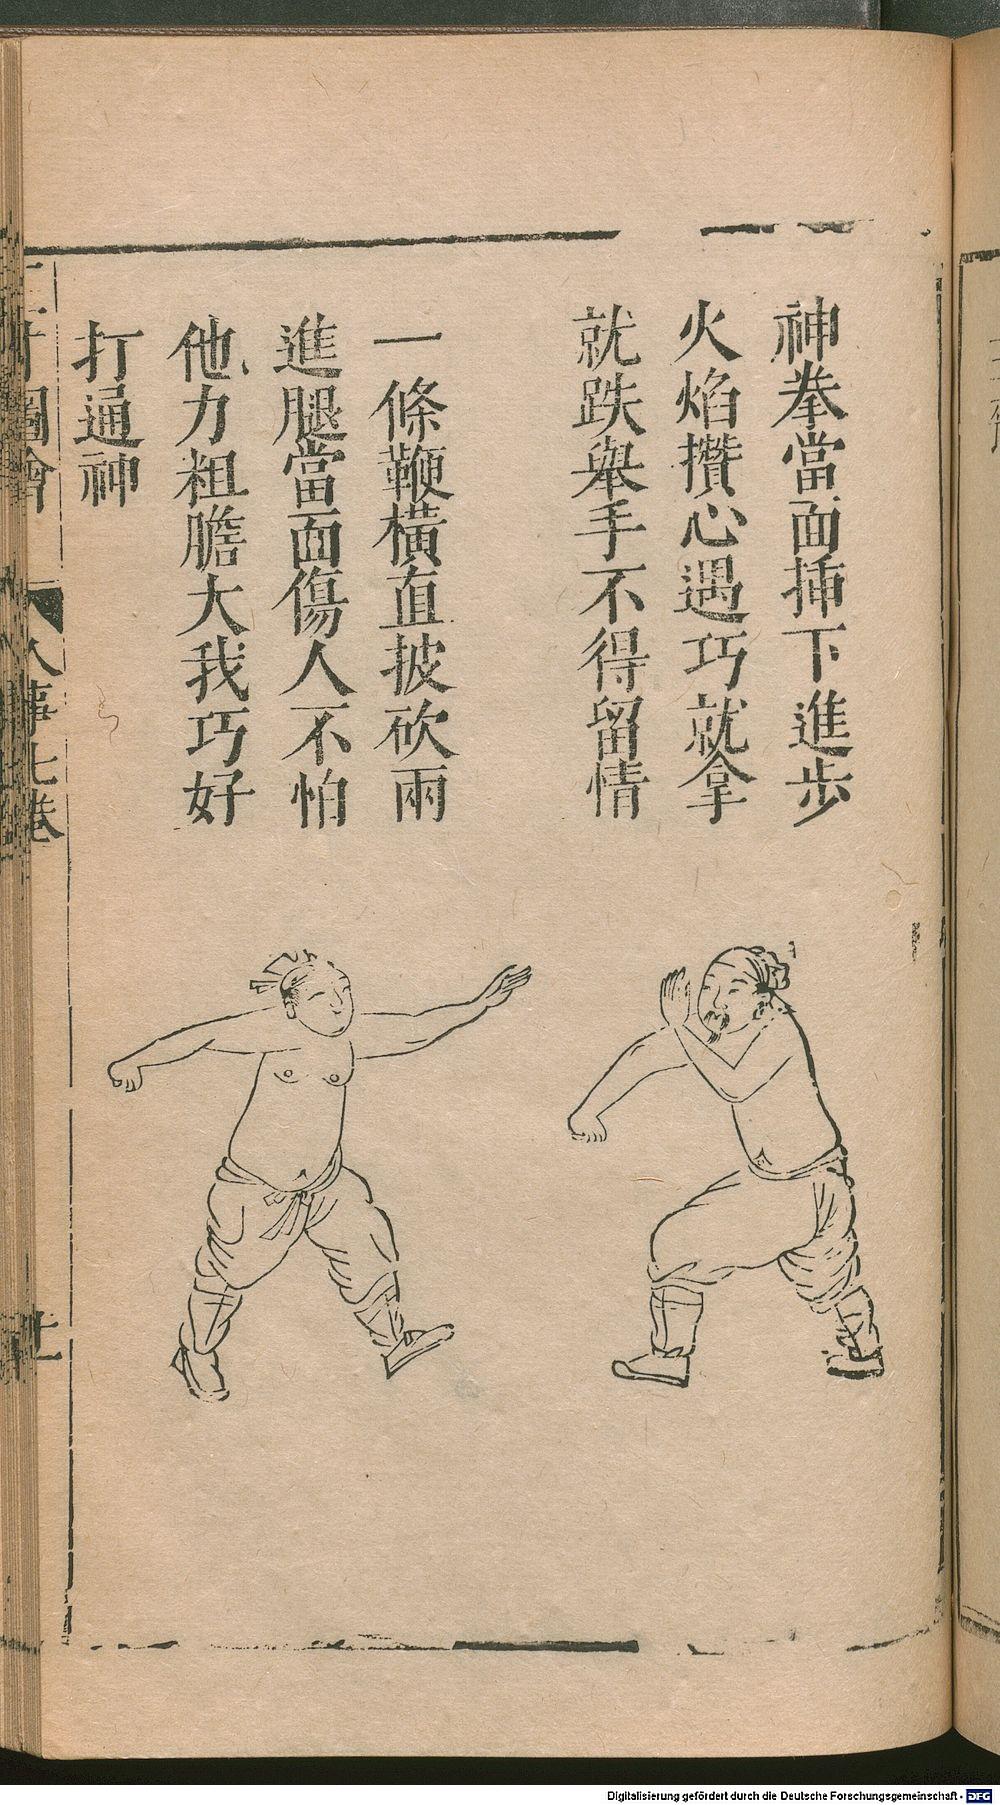 神拳當面揷下進步
火焰攢心遇巧就拿
就跌舉手不得留情
一條鞭橫直披砍兩
進腿當面傷人不怕
他力粗膽大我巧好
打通神
圖會
人事七卷
Digitalisierung gefördert durch die Deutsche Forschungsgemeinschaft - DFG